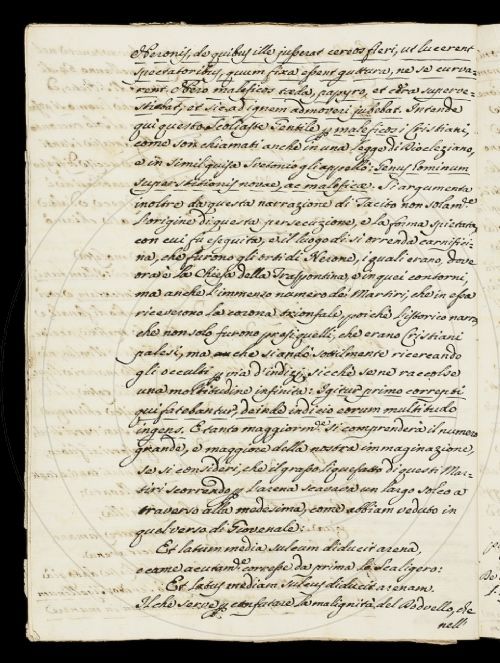 Neronis, de quibus ille jusserat cereos fieri, ut lucerent
spectatoribus, quum fixa essent guttura, ne se curva=
rent. Nero maleficos tæda, papyro, et cera superve=
stiebat, et sic ad ignem admoveri jubebat. Intende
qui questo Scoliaste Gentile p maleficos i Cristiani,
come son chiamati anche in una legge di Diocleziano,
e in simil guisa Svetonio gli appellò: Genus hominum
superstitionis novæ, ac maleficæ. Si argumenta
inoltre da questa narrazione di Tacito non solam.e
l'origine di questa persecuzione, e la forma spietata,
con cui fu eseguita, e il luogo di sì orrenda carnifici=
na, che furono gli orti di Nerone, i quali erano, dove
ora è la Chiesa della Traspontina, e in quei contorni,
ma anche l'immenzo numero dei Martiri, che in essa
riceverono la corona trionfale, poichè l'istorico narra,
che non solo furono presi quelli, che erano Cristiani
palesi, ma anche si andò sottilmente ricercando
gli occulti p via d'indizi, sicchè se ne raccolse
una moltitudine infinita: Igitur primo correpti
qui fatebantur, deinde indicio eorum multitudo
ingens. E tanto maggiorm.e si comprenderà il numero
grande, e maggiore della nostra immaginazione,
se si consideri, che il grasso liquefatto di questi Mar=
tiri scorrendo p l'arena scavava un largo solco a
traverso alla medesima, come abbiam veduto in
quel verso di Giovenale:
Et latum media sulcum diducit arena,
o come acutam.e corresse da prima lo Scaligero:
Et latus mediam sulcus diducit arenam.
Il che serve p confutare la malignità del Dodvello, che
nell'